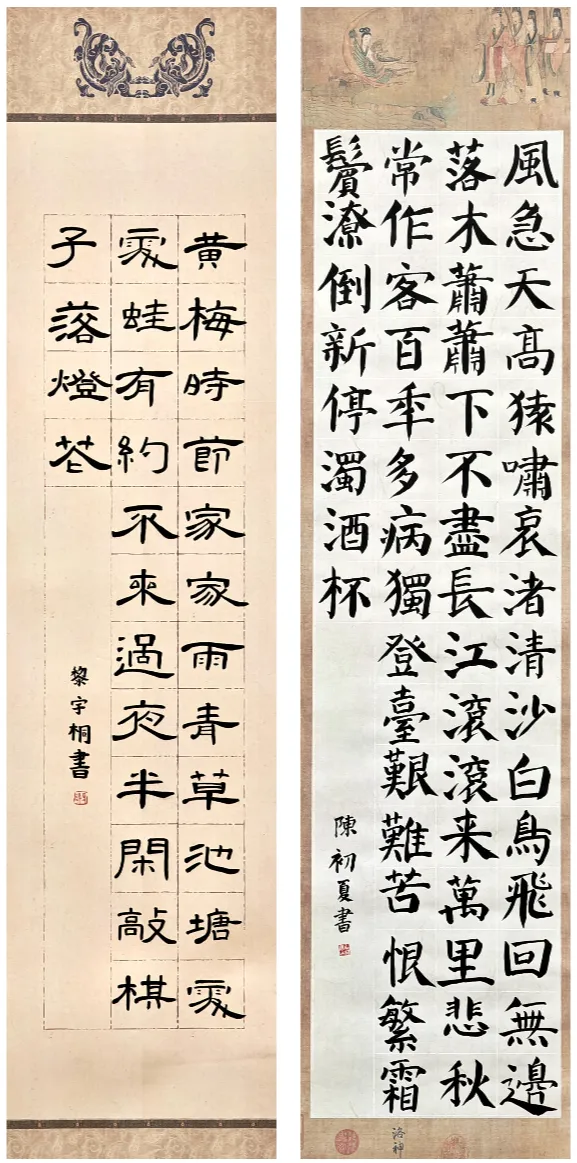 風急天髙猿嘯哀渚清沙白鳥飛回無邊
落木蕭蕭下不盡長江滾滾来萬里悲秋
常作客百年多病獨登臺艱難苦恨繁霜
鬢潦倒新停濁酒杯
陳初夏書
洛神
黃梅時節家家雨青草池塘處
處蛙有約不來過夜半閑敲棋
子落燈花
黎宇桐書